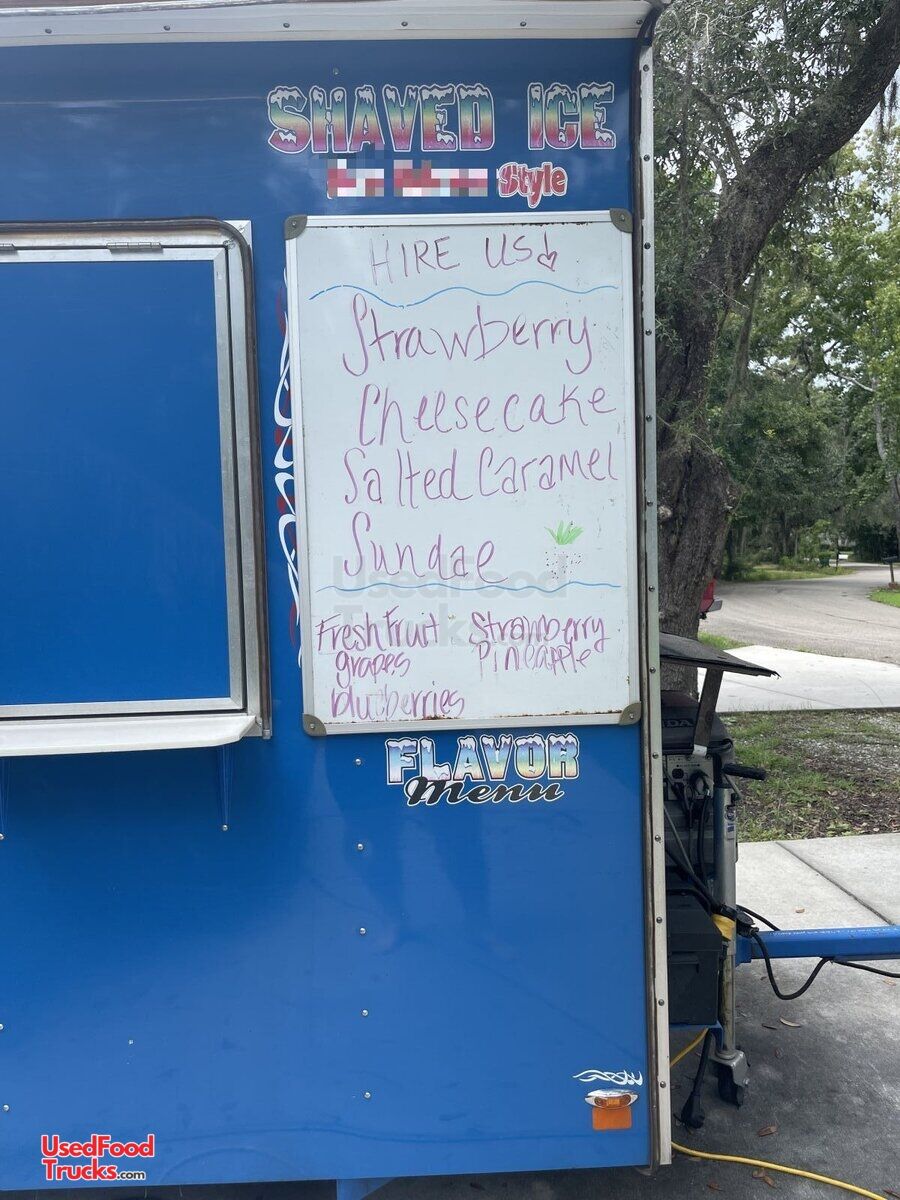 SHAVED ICE
Style
HIRE US!
Strawberry
Cheesecake
Salted Caramel
Sundae
UsedFood
Trucks.com
Fresh Fruit
grapes
blueberries
Strawberry
Pineapple
FLAVOR
Menu
UsedFood
Trucks.com